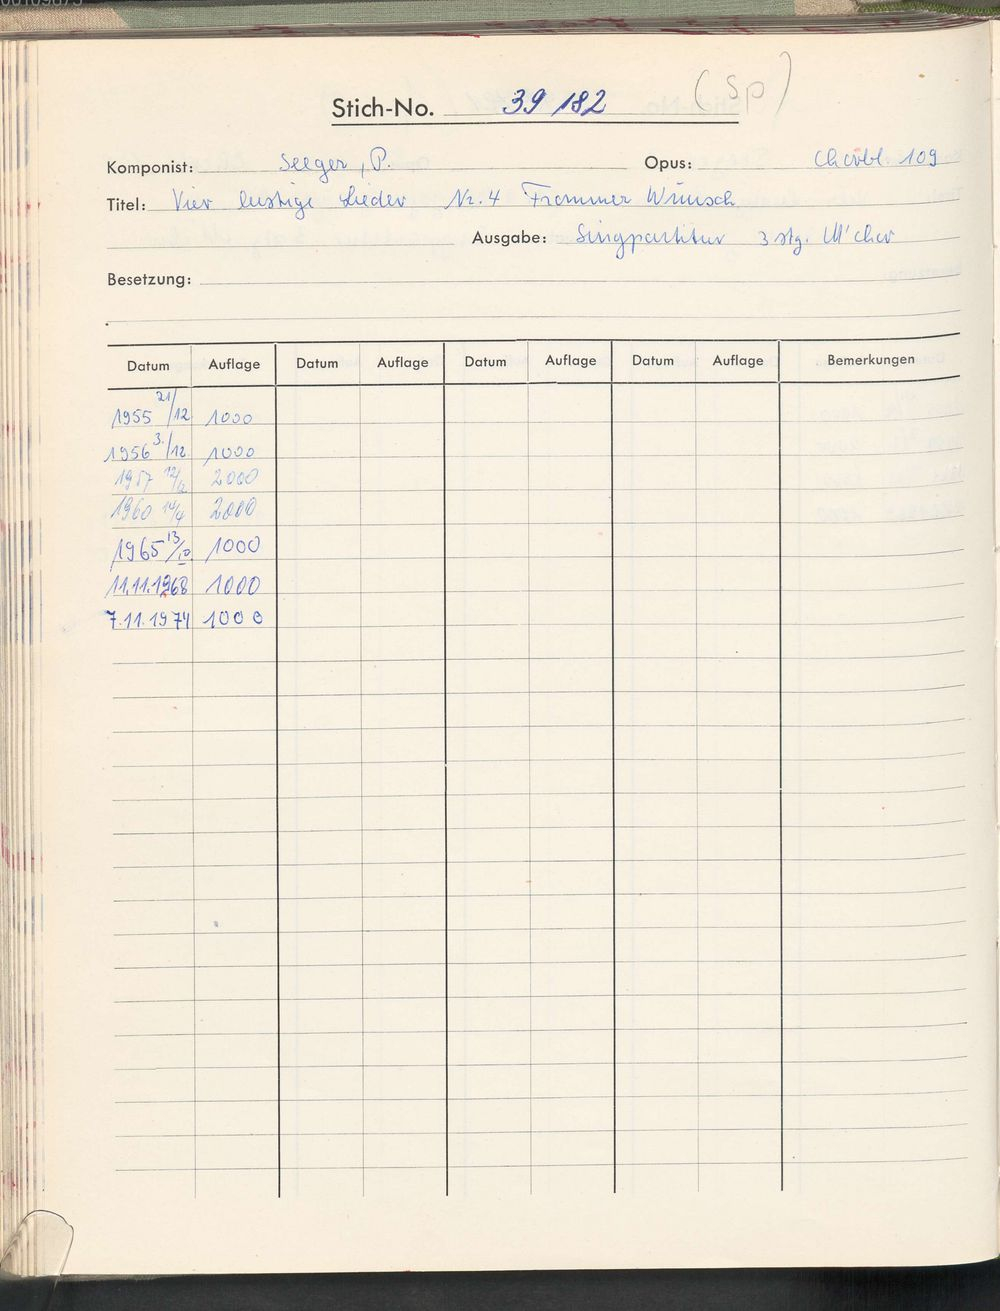 Stich-No. 39 182 (Sp)
Komponist: Seeger, P. Opus: Chorbl. 109
Titel: Vier lustige Lieder Nr. 4 Frommer Wunsch
Ausgabe: Singpartitur 3 stg. M'chor
Besetzung:
Datum Auflage Datum Auflage Datum Auflage Datum Auflage Bemerkungen
1955 21/12 1000
1956 3./12. 1000
1957 12/2 2000
1960 14/4 2000
1965 13/10 1000
11.11.1968 1000
7.11.1974 1000